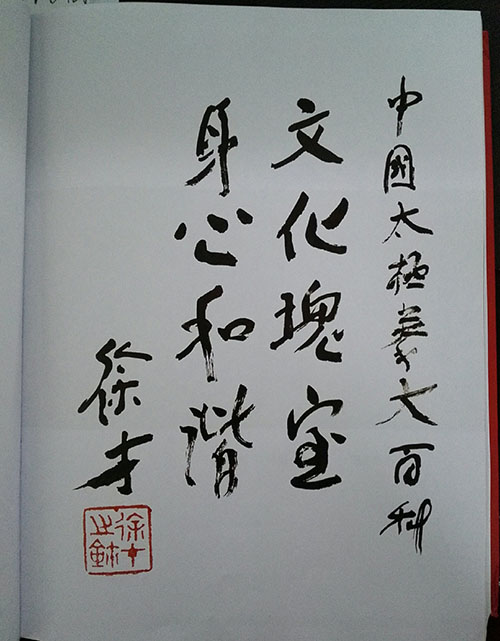 中國太極拳大百科
文化瑰宝
身心和谐
徐才
徐才之鉥